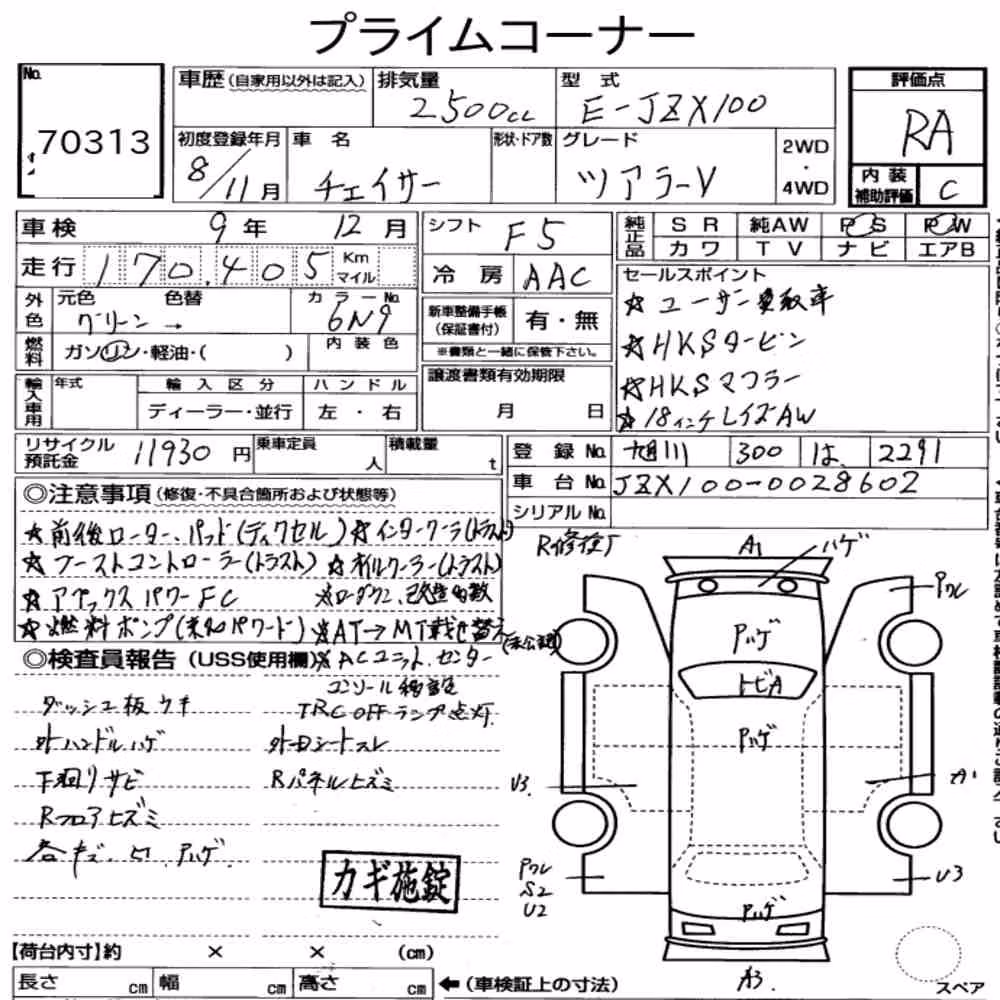 プライムコーナー
No. 70313
車歴(自家用以外は記入) 排気量 2500cc 型式 E-JZX100
初度登録年月 8/11月 車名 チェイサー 形状・ドア数 グレード ツアラーV 2WD・4WD
評価点 RA
内装補助評価 C
車検 9年 12月
シフト F5
純正品 SR 純AW PS PW
カワ TV ナビ エアB
走行 170.405 Km マイル
冷房 AAC
外色 元色 グリーン → 色替 カラーNo. 6N9
燃料 ガソリン・軽油・( ) 内装色
新車整備手帳(保証書付) 有・無
※書類と一緒に保管下さい。
輸入車用 年式 輸入区分 ディーラー・並行 ハンドル 左・右
譲渡書類有効期限 月 日
セールスポイント
☆ユーザー買取車
☆HKSタービン
☆HKSマフラー
☆18インチレイズAW
リサイクル預託金 11930円 乗車定員 人 積載量 t
登録No. 旭川 300 は 2291
車台No. JZX100-0028602
シリアルNo.
◎注意事項(修復・不具合箇所および状態等)
☆前後ローター、パッド(ディクセル) ☆インタークーラ(トラスト)
☆ブーストコントローラー(トラスト) ☆オイルクーラー(トラスト)
☆アペックスパワーFC ※ローダウン、改造多数
☆燃料ポンプ(未知パワード) ※AT→MT載せ替え(未公認)
◎検査員報告(USS使用欄) ※ACユニット、センター
コンソール
ダッシュ板ウキ TRC OFFランプ点灯
外ハンドルハゲ 外田シートスレ
下廻りサビ Rパネルヒズミ
Rフロアヒズミ
各キズ、凹、Pハゲ
カギ施錠
R修復歴
A1 ハゲ
Pワレ
Pハゲ
トビA
Pハゲ
U3 A1
Pワレ
S2
U2
U3
Pハゲ
A3
スペア
【荷台内寸】約 × × (cm)
長さ cm 幅 cm 高さ cm ←(車検証上の寸法)